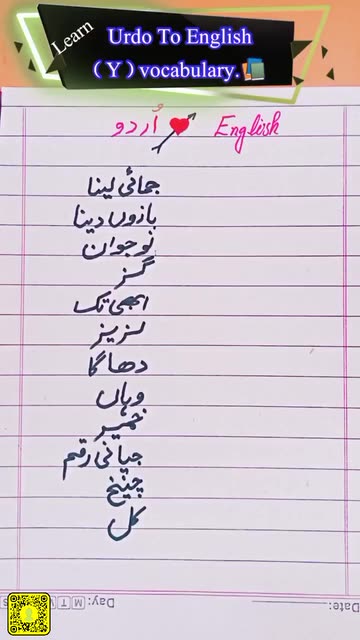 Learn
Urdo To English
( Y ) vocabulary.
اُردو English
جمائی لینا
بازوں دینا
نوجوان
گز
ابھی تک
لزیز
دھاگا
وہاں
خمیر
جپانی رقم
چینخ
کل
Day: M T W
Date: